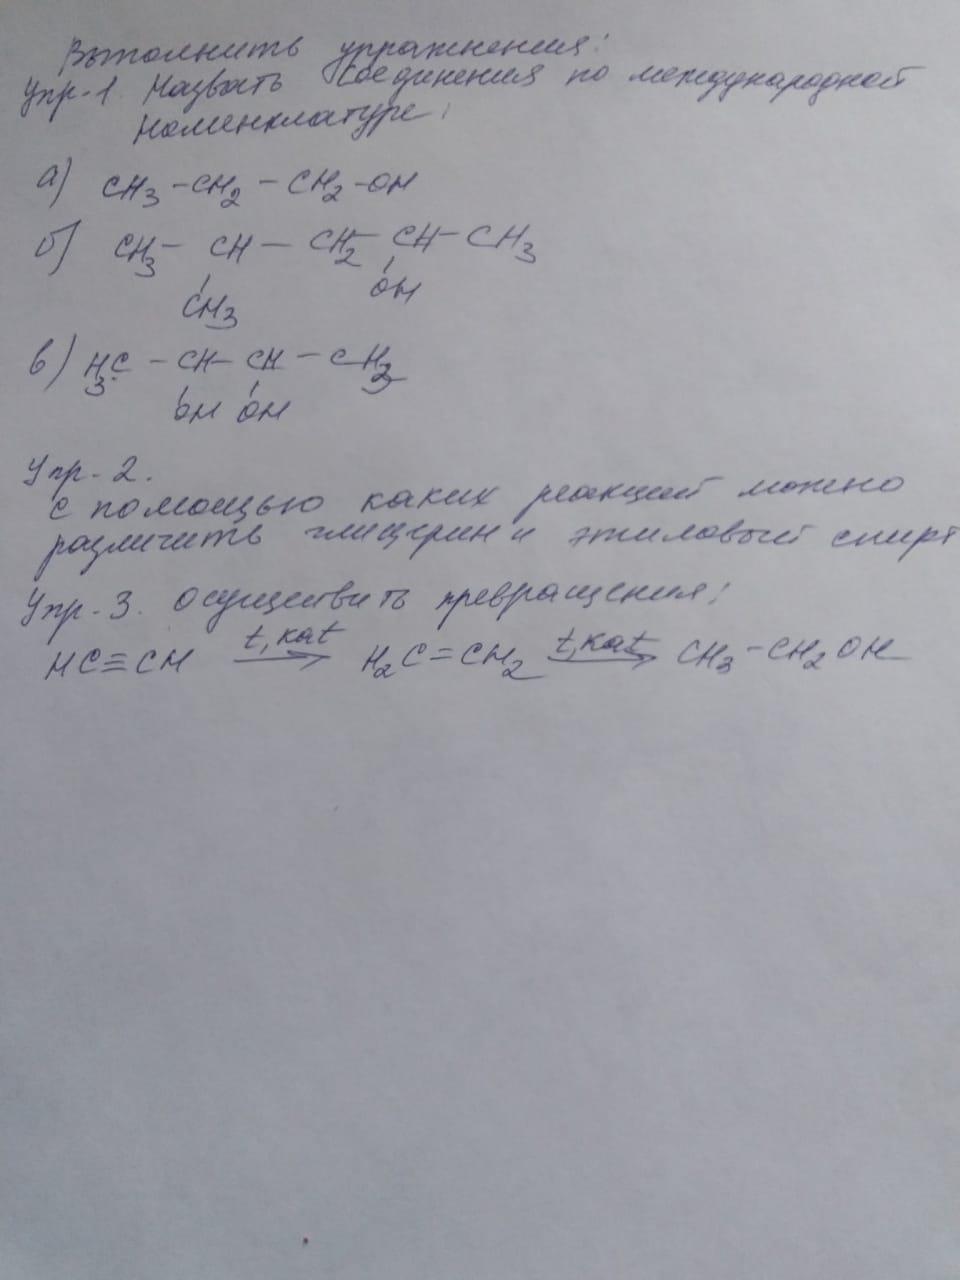 Выполнить упражнения:
Упр-1. Назвать соединения по международной
номенклатуре:
а) CH3 - CH2 - CH2 - OH
б) CH3 - CH - CH2 - CH - CH3
CH3 OH
в) H3C - CH - CH - CH3
OH OH
Упр-2.
С помощью каких реакций можно
различить глицерин и этиловый спирт
Упр-3. Осуществить превращения:
t, kat t, kat
HC≡CH → H2C=CH2 → CH3-CH2OH